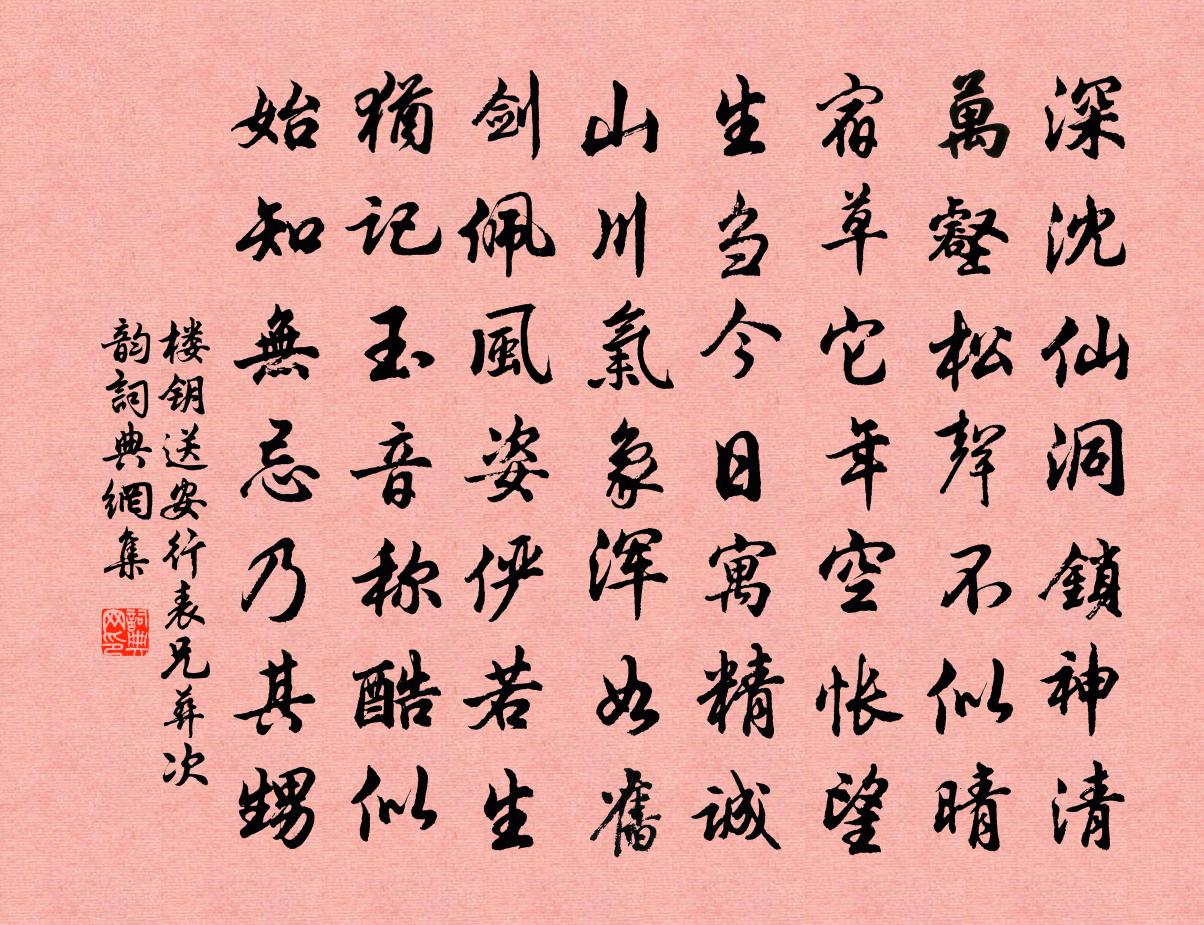 深沈仙洞鎖神清
萬壑松聲不似晴
宿草它年空怅望
生刍今日寓精誠
山川氣象浑如舊
剑佩風姿俨若生
猶记玉音称酷似
始知無忌乃其甥
楼钥送安行表兄葬次
韵詞典網集
詞典网印